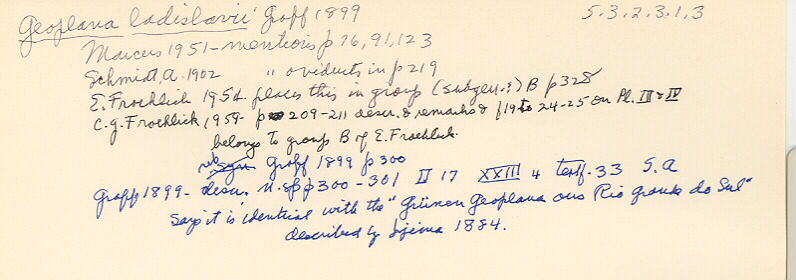 Geoplana ladislavii Graff 1899 5.3.2.3.1.3
Marcus 1951 - mentions p 76, 91, 123
Schmidt, A. 1902 " oviducts in p 219
E. Froehlich 1954. places this in group (subgen.?) B p 328
C.G. Froehlich 1959 - p 209-211 descr. & remarks & f 19 to 24-25 on Pl. III & IV
belongs to group B of E. Froehlich.
Graff 1899 p 300
Graff 1899 - descr. n. sp p 300-301 II 17 XXIII 4 textf. 33 S.A
Says it is identical with the "Grünen Geoplana aus Rio grande do Sul"
described by Ijima 1884.